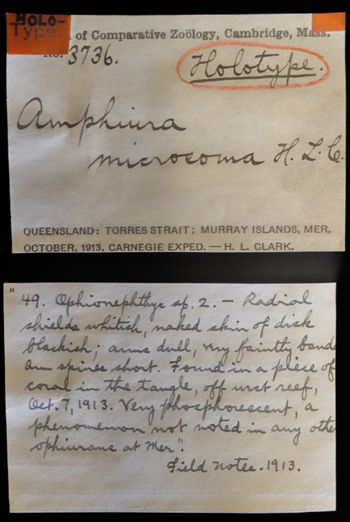 HOLO-
Type.
of Comparative Zoölogy, Cambridge, Mass.
No. 3736.
Holotype.
Amphiura
microcoma H. L. C.
QUEENSLAND: TORRES STRAIT; MURRAY ISLANDS, MER.
OCTOBER, 1913. CARNEGIE EXPED. — H. L. CLARK.
"49. Ophionephthys sp. 2. — Radial
shields whitish, naked skin of disk
blackish; arms dull, very faintly band
Arm spines short. Found in a piece of
coral in the tangle, off west reef,
Oct. 7, 1913. Very phosphorescent, a
phenomenon not noted in any othe
ophiurans at Mer".
Field Notes. 1913.